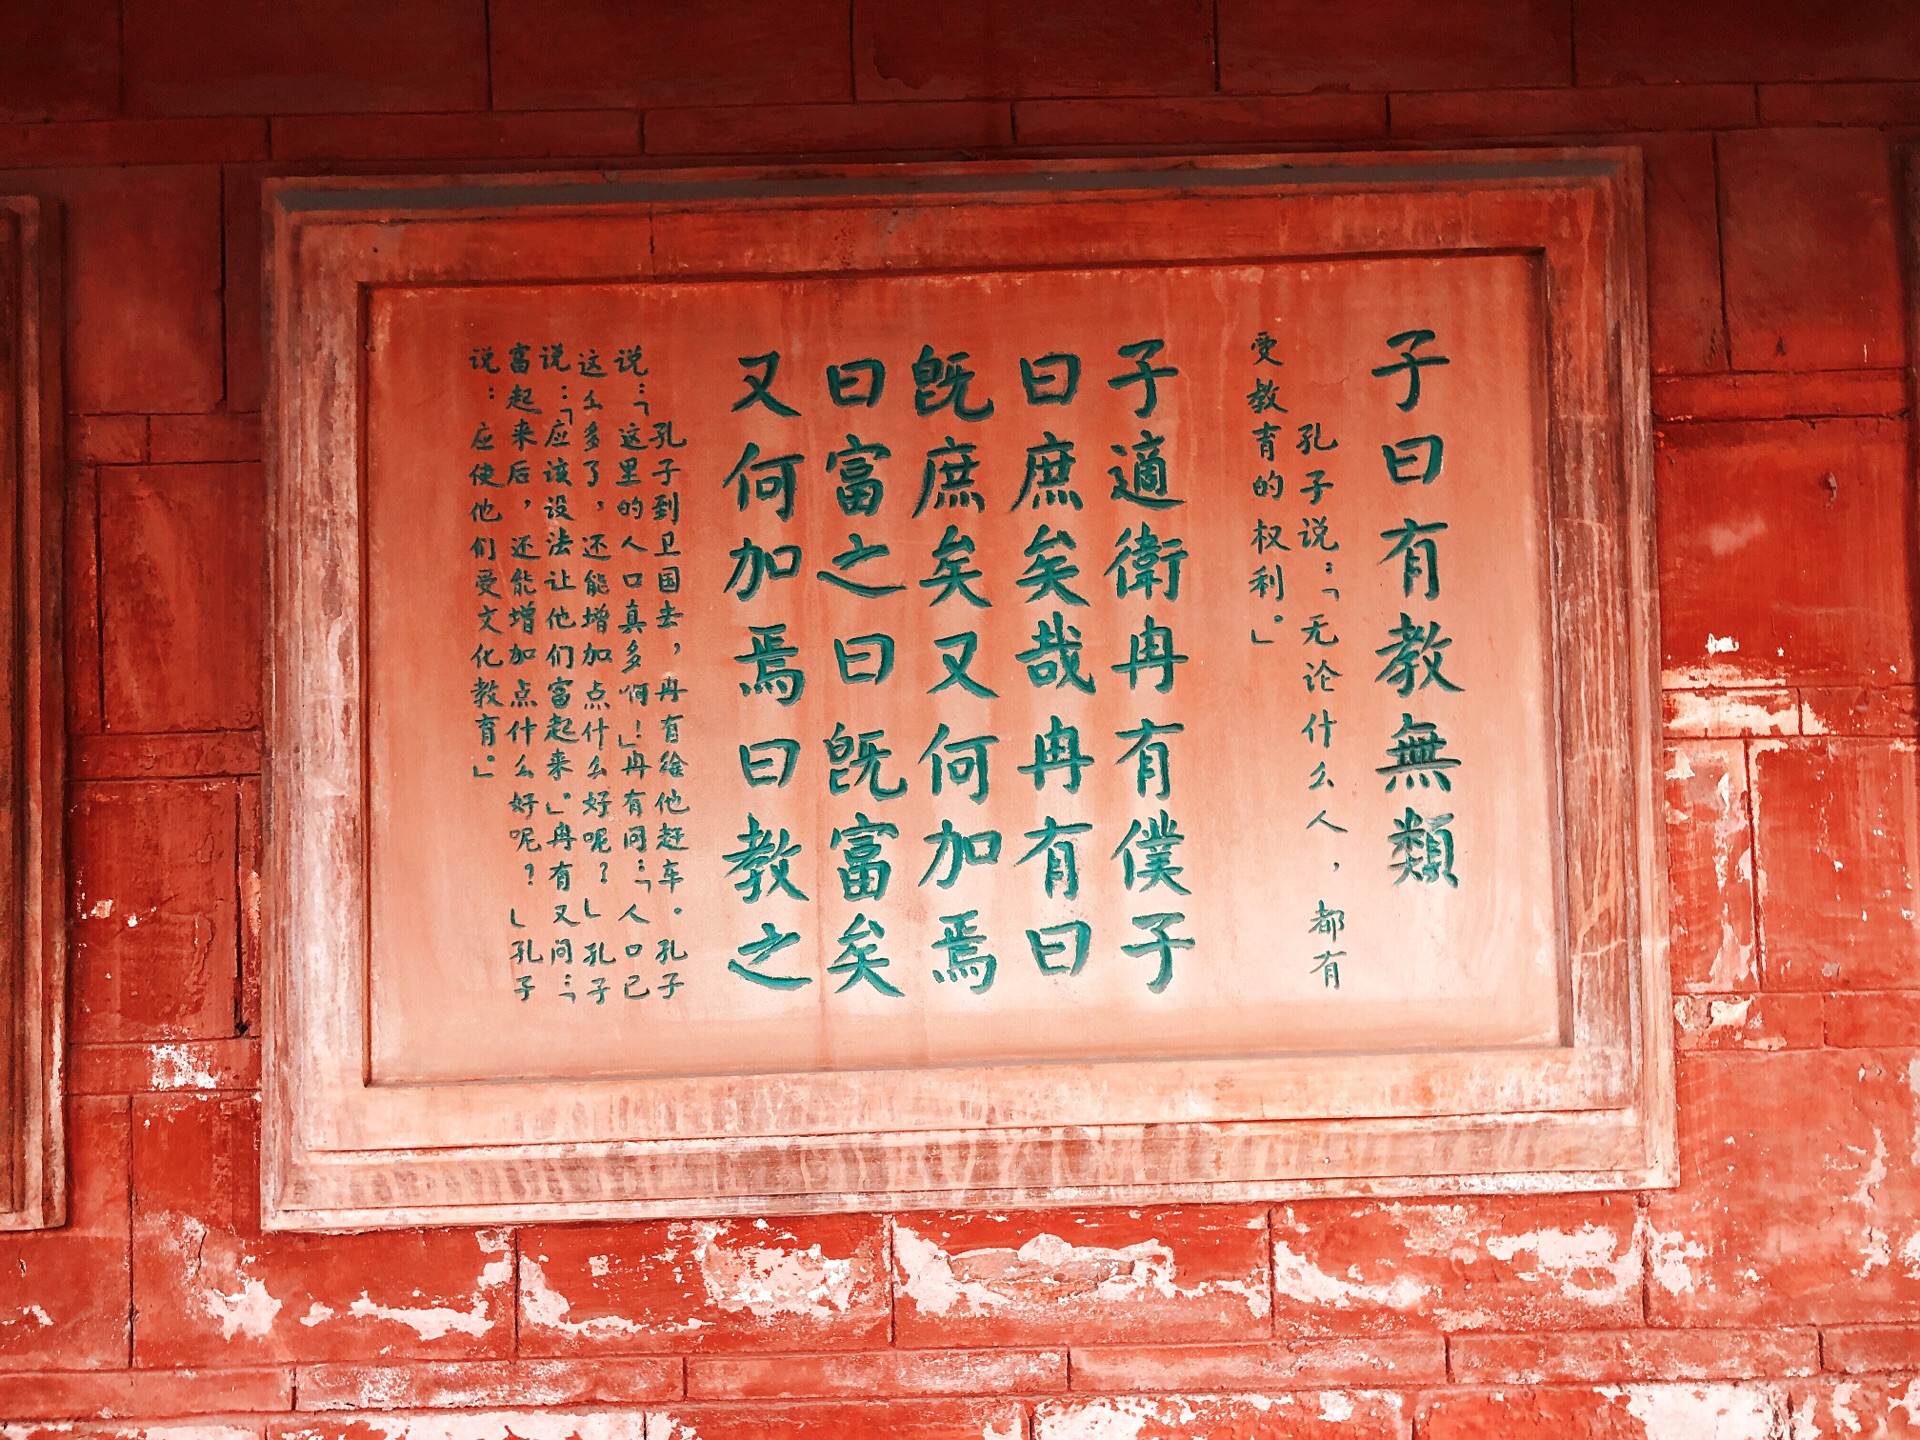 子曰有教無類
孔子说：「无论什么人，都有
受教育的权利。」
子適衛冉有僕子
曰庶矣哉冉有曰
既庶矣又何加焉
曰富之曰既富矣
又何加焉曰教之
孔子到卫国去，冉有给他赶车。孔子
说：「这里的人口真多呵！」冉有问：「人口已
这么多了，还能增加点什么好呢？」孔子
说：「应该设法让他们富起来。」冉有又问：「
富起来后，还能增加点什么好呢？」孔子
说：应使他们受文化教育。」